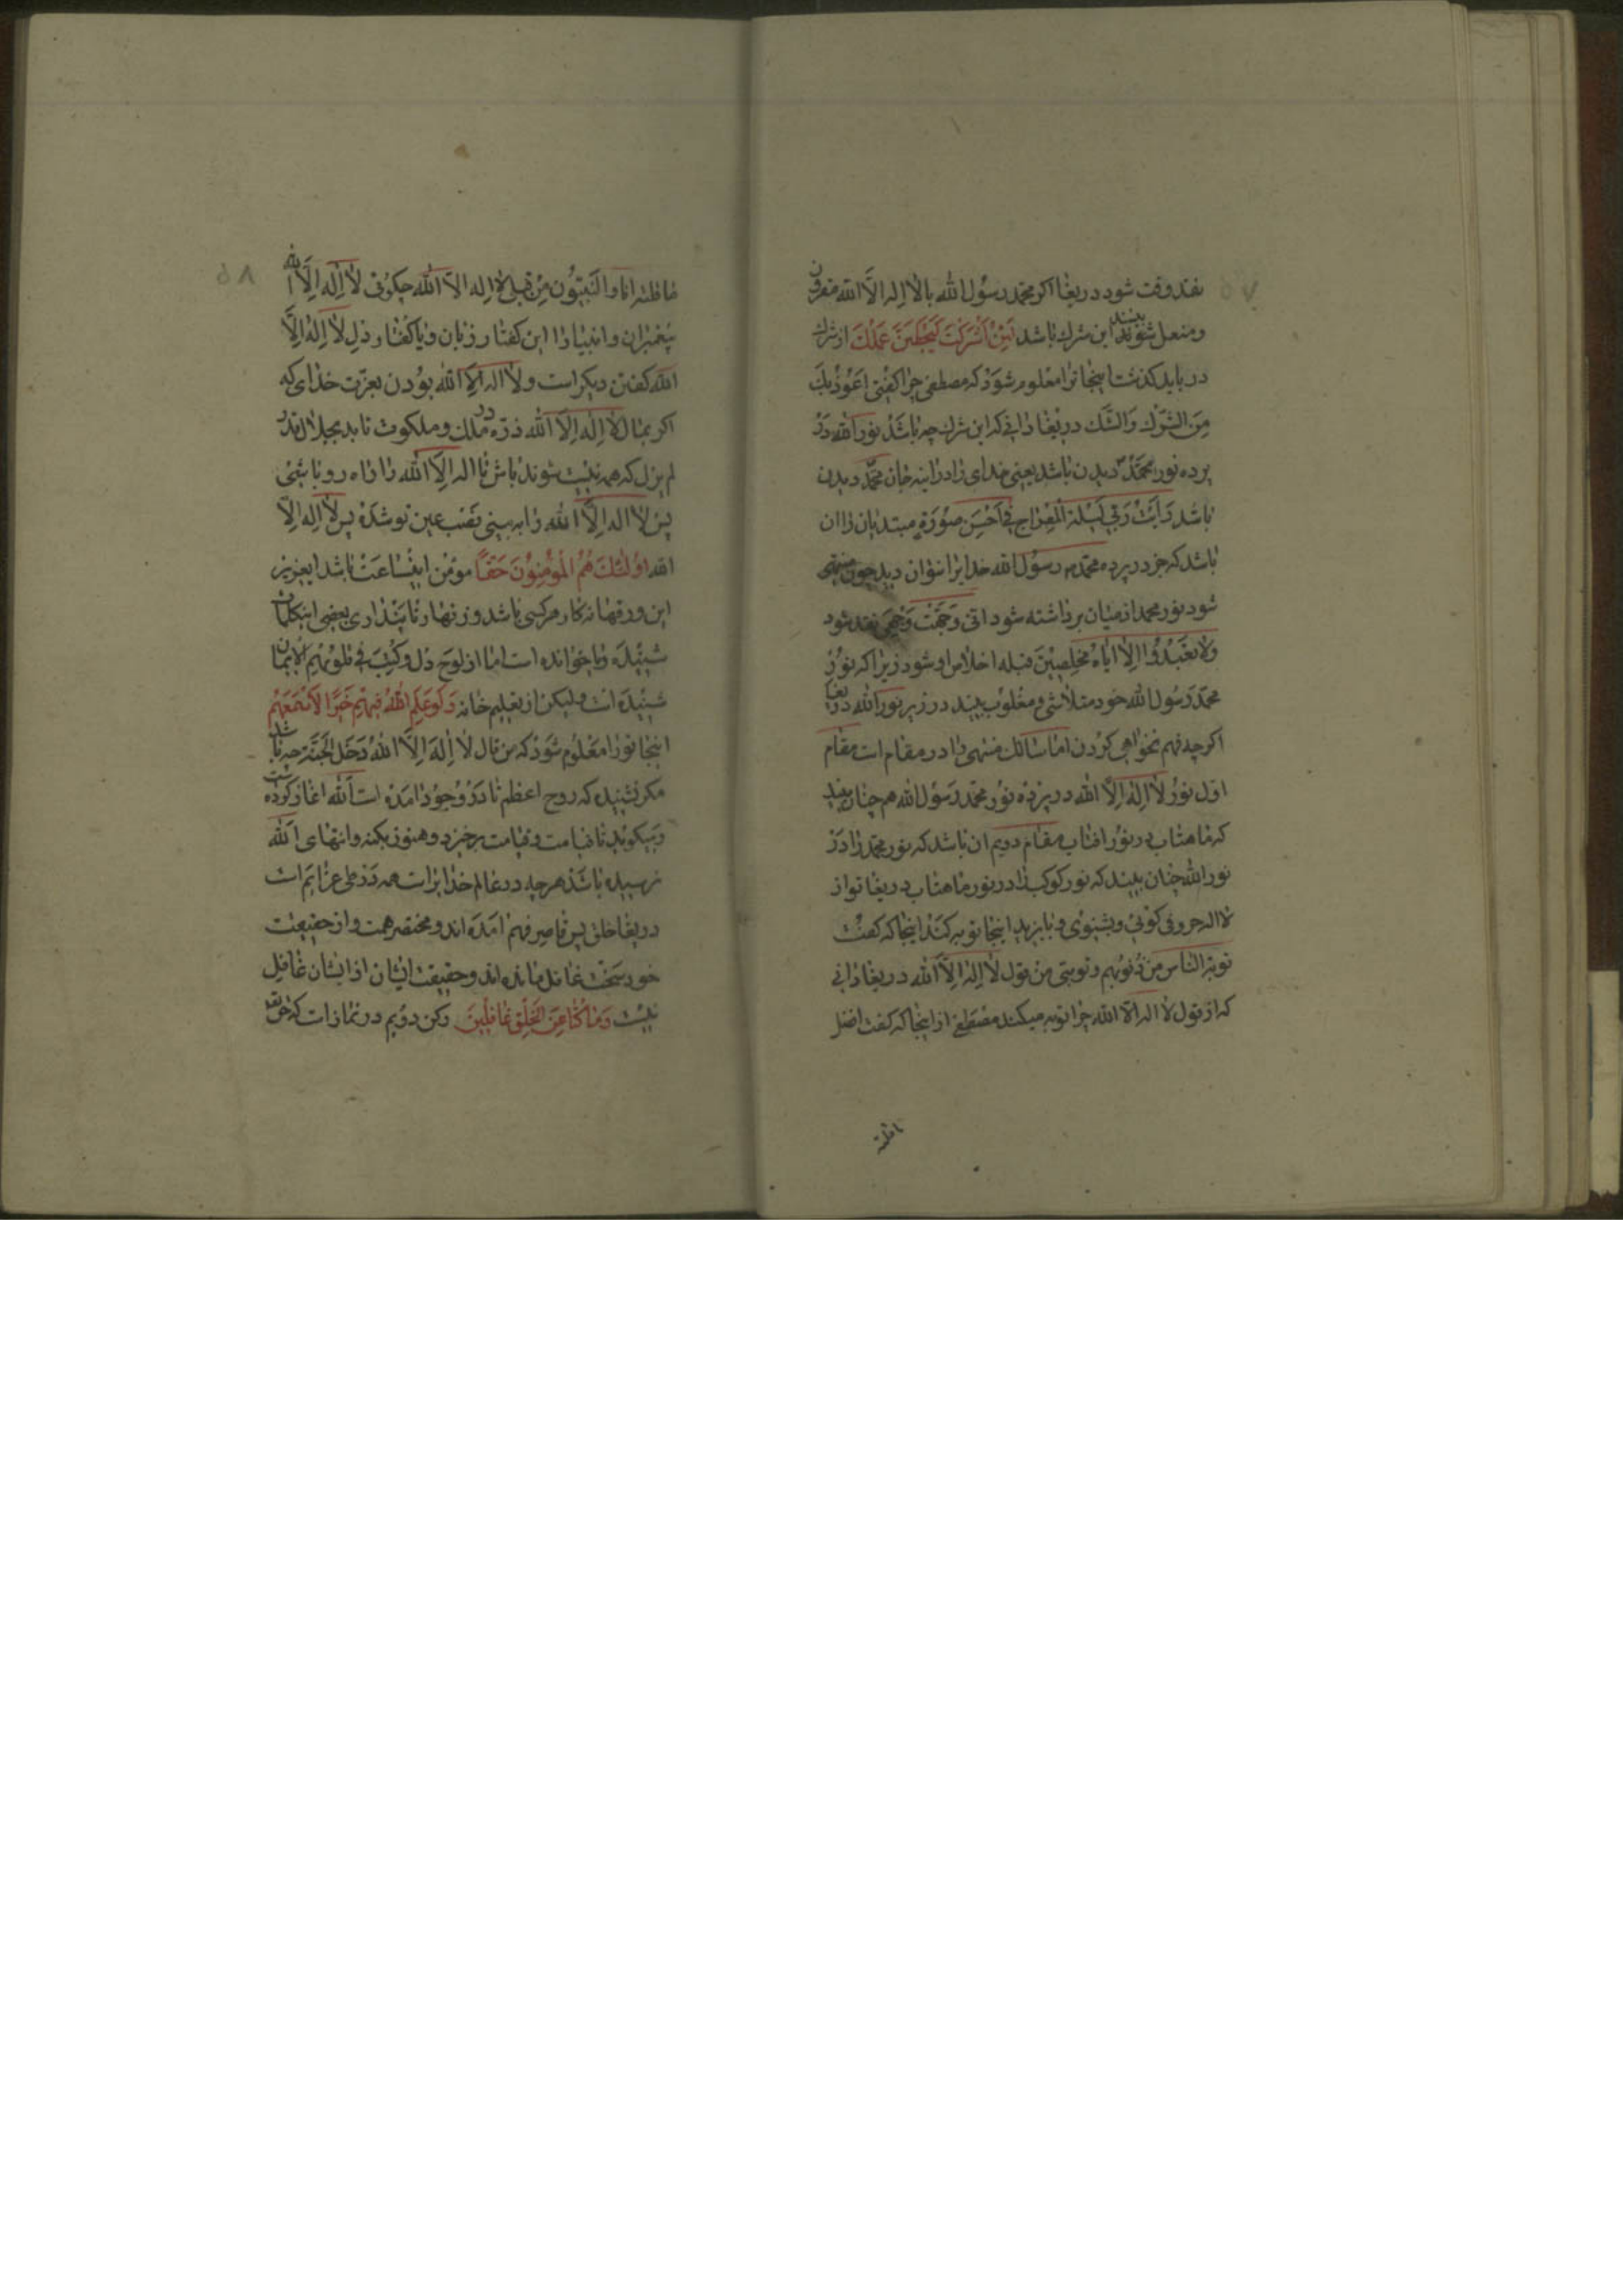 نقد وقت شود دریغا اکر محمد رسول الله با لا اله الا الله مقرون
و متصل شوند بینند این شرک باشد لَئِنْ اَشْرَکْتَ لَیَحْبَطَنَّ عَمَلُکَ از شرک
در باید کذشت اینجا ترا معلوم شوذ که مصطفی چرا کفتی اعوذ بک
مِنَ الشِّرْک وَالشَّک دریغا دانی که این شرک چه باشذ نور الله دَرْ
پرده نور محمّدٌ دیدن باشد یعنی خدای را در اینه جان محمّد دیدن
باشد رَاَیْتُ رَبّی لَیْلَةَ الْمِعْراجِ فی اَحْسَنِ صُوْرَةٍ مبتدیان را ان
باشد که جز در پرده محمّد رسُول الله خدایرا نتوان دید چون منتهی
شود نور محمد از میان برداشته شود انّی وَجَّهْتُ وَجْهِیَ نقد شود
وَلا تَعْبُدُوا اِلّا ایّاهُ مُخْلِصِیْنَ قبله اخلاص او شود زیرا که نُوْر
محمّد رَسُول الله خود متلاشی و مغلوب بیند در زیر نور الله دریغا
اکرچه فهم نخواهی کردن اما سالک منتهی را دو مقام است مقام
اوّل نورِ لا اِلهَ اِلّا الله در پرده نور محمّد رَسُول الله هم چنان بیند
که ماهتاب در نُوْر افتاب مقام دویم ان باشد که نور محمّد را دَرْ
نور الله چنان بیند که نور کوکب را در نور ماهتاب دریغا تو از
لا اله حروفی کوئی و بشنوی و بایزید اینجا توبه کَنَدْ اینجا که کفت
توبة الناس من ذُنُوْبِهِم و توبتی من قول لا اِله اِلّا الله دریغا دانی
که از قول لا اله الّا الله چرا توبه میکند مصطفی از اینجا که کفت افضل
ما قلته
ما قلته انا و النَّبِیُّون مِنْ قبلی لا اِله الّا الله چکوئی لا اِلٰه اِلّا الله
پیغمبران و انبیا را این کفتار زبان و یا کفتار دل لا اله الّا
الله کفتن دیکر است و لا اله اِلّا الله بُوْدن بعزّت خدای که
اکر جمال لا اِله اِلّا الله ذرّه در ملک و ملکوت تابد بجلال قدر
لم یزل که همه نیست شوند باش تا اله اِلّا الله را راه رو باشی
پس لا اله اِلّا الله را به بینی نصب عین تو شده پس لا اِله اِلّا
الله اُولئِکَ هُمُ الْمُؤْمِنُوْنَ حَقّاً مؤمن اینساعت باشد ایعزیز
این ورقها نه کار هر کسی باشد و زنهار تا پنداری بعضی اینکلمات
شنیده و یا خوانده است اما از لوح دل وَکُتِبَ فی قُلُوْبِهِم الایمان
شنیده است ولیکن از تعلیم خانه وَلَوْ عَلِمَ اللهُ فِیْهِمْ خَیْراً لَاَسْمَعَهُمْ
اینجا تورا مَعْلُوْم شَوَد که من قال لا اِلٰهَ اِلّا اللهُ دَخَل الجَنَّةَ چه باشد
مکر نشنیده که روح اعظم تا دَرْ وُجُوْد امَدَه است اَلله اغاز کرده است
و میکوید تا قیامت و قیامت برخیزد و هنوز بکنه و انتهای الله
نرسیده باشد هرچه در عالم خدایراست همه در طی عزایَم است
دریغا خلق بس قاصر فهم امَدَه اند و مختصر همت و از حقیقت
خود سَخْت غافل مانده اند و حقیقت ایشان از ایشان غافِل
نیست وَمَا کُنّا عَنِ الْخَلْقِ غافِلِیْنَ رکن دوّیم در نماز است که حق تع